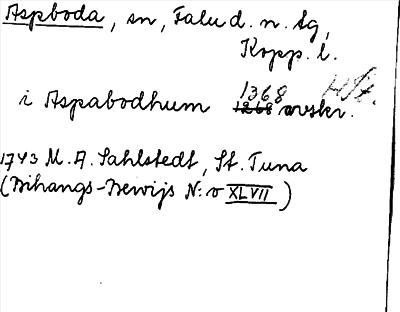 Aspboda, sn, Falu d. n. tg,
Kopp. l.
i Aspabodhum 1368 avskr.
1743 M. A. Sahlstedt, St. Tuna
(Bihangs-Bewijs N:o XLVII)